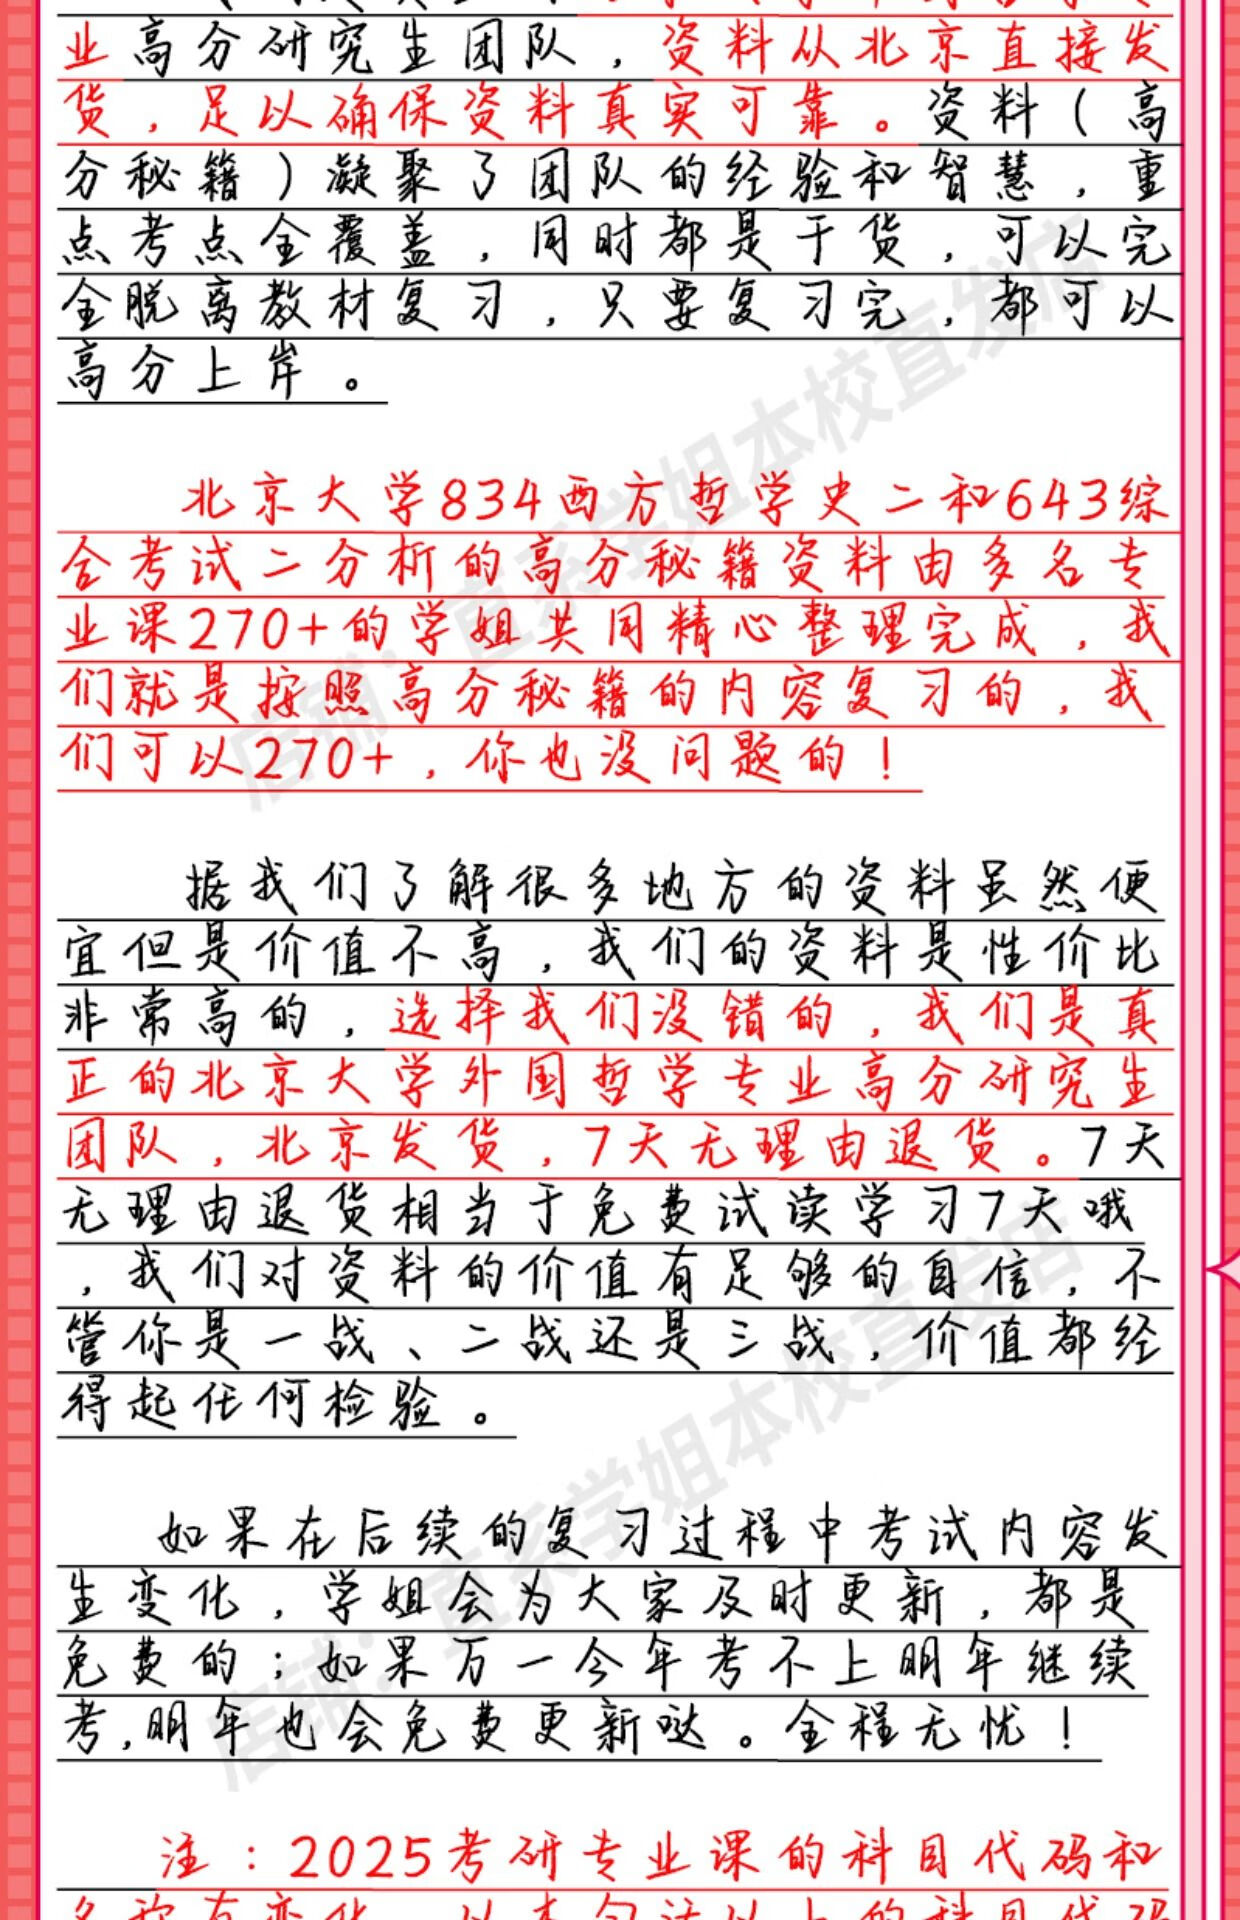 业高分研究生团队，资料从北京直接发
货，足以确保资料真实可靠。资料（高
分秘籍）凝聚了团队的经验和智慧，重
点考点全覆盖，同时都是干货，可以完
全脱离教材复习，只要复习完，都可以
高分上岸。
北京大学834西方哲学史二和643综
合考试二分析的高分秘籍资料由多名专
业课270+的学姐共同精心整理完成，我
们就是按照高分秘籍的内容复习的，我
们可以270+，你也没问题的！
据我们了解很多地方的资料虽然便
宜但是价值不高，我们的资料是性价比
非常高的，选择我们没错的，我们是真
正的北京大学外国哲学专业高分研究生
团队，北京发货，7天无理由退货。7天
无理由退货相当于免费试读学习7天哦
，我们对资料的价值有足够的自信，不
管你是一战、二战还是三战，价值都经
得起任何检验。
如果在后续的复习过程中考试内容发
生变化，学姐会为大家及时更新，都是
免费的；如果万一今年考不上明年继续
考，明年也会免费更新哒。全程无忧！
注：2025考研专业课的科目代码和
店铺：直系学姐本校直发店
店铺：直系学姐本校直发店